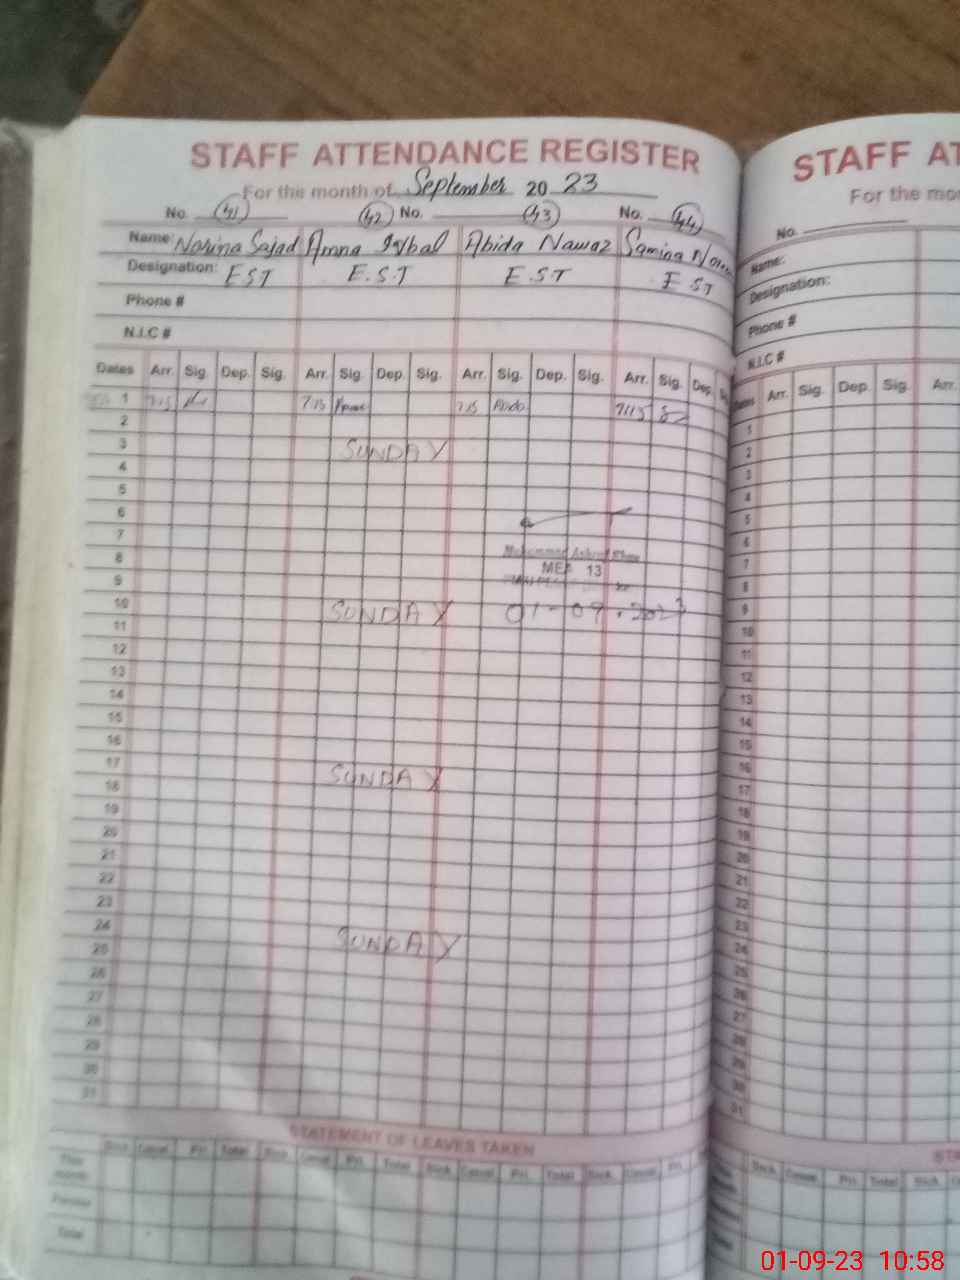 STAFF ATTENDANCE REGISTER
For the month of September 20 23
No. 41 42 No. 43 No. 44
Name: Narina Sajad Amna Iqbal Abida Nawaz Samina
Designation: EST E.S.T E.S.T EST
Phone #
N.I.C #
Dates Arr. Sig. Dep. Sig. Arr. Sig. Dep. Sig. Arr. Sig. Dep. Sig. Arr. Sig. Dep.
1 7:15 7:15 7:15 7:15
2
3 SUNDAY
4
5
6
7
8 Muhammad
MEA 13
9
10 SUNDAY 01-09-2023
11
12
13
14
15
16
17 SUNDAY
18
19
20
21
22
23
24 SUNDAY
25
26
27
28
29
30
31
STATEMENT OF LEAVES TAKEN
Sick Casual Pri. Total Sick Casual Pri. Total Sick Casual Pri. Total Sick Casual Pri.
This month
Previous
Total
STAFF AT
For the mon
No.
Name:
Designation:
Phone #
N.I.C #
Dates Arr. Sig. Dep. Sig. Arr.
1
2
3
4
5
6
7
8
9
10
11
12
13
14
15
16
17
18
19
20
21
22
23
24
25
26
27
28
29
30
31
STA
Sick Casual Pri. Total Sick
01-09-23 10:58